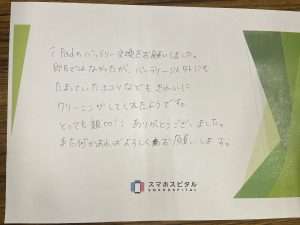 iPadのバッテリー交換をお願いしました。
即日ではなかったが、バッテリー以外にも
たまっていたホコリなどもきれいに
クリーニングしてくれたようです。
とっても親切で ありがとうございました。
また何かあればよろしくお願いします。
スマホスピタル
SMAHOSPITAL